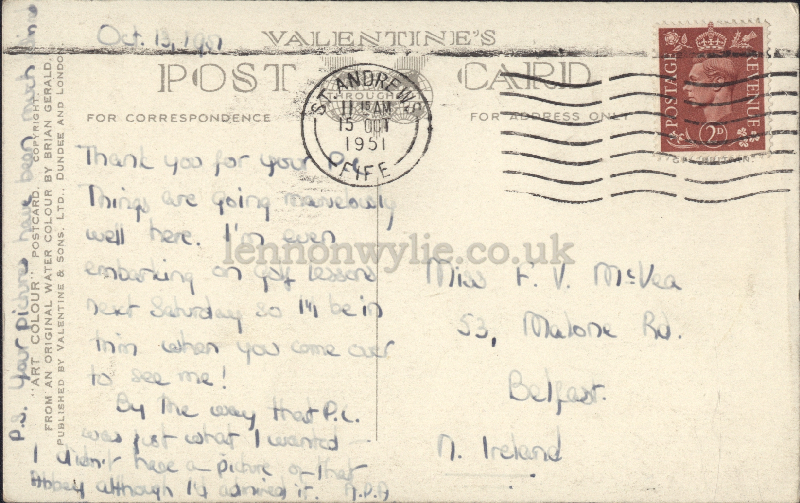 Oct. 13, 1951
VALENTINE'S
POST CARD
FOR CORRESPONDENCE
FOR ADDRESS ONLY
ST. ANDREWS
11 15 AM
15 OCT
1951
FIFE
POSTAGE
REVENUE
2D
Thank you for your P.C.
Things are going marvelously
well here. I'm even
embarking on golf lessons
next Saturday so I'll be in
trim when you come over
to see me!
By the way that P.C.
was just what I wanted
I didn't have a picture of that
Abbey although I'd admired it. A.D.A
P.S. Your pictures have been much
"ART COLOUR" POSTCARD. COPYRIGHT.
FROM AN ORIGINAL WATER COLOUR BY BRIAN GERALD.
PUBLISHED BY VALENTINE & SONS, LTD., DUNDEE AND LONDON
Miss F. V. McVea
53, Malone Rd.
Belfast.
N. Ireland
lennonwylie.co.uk